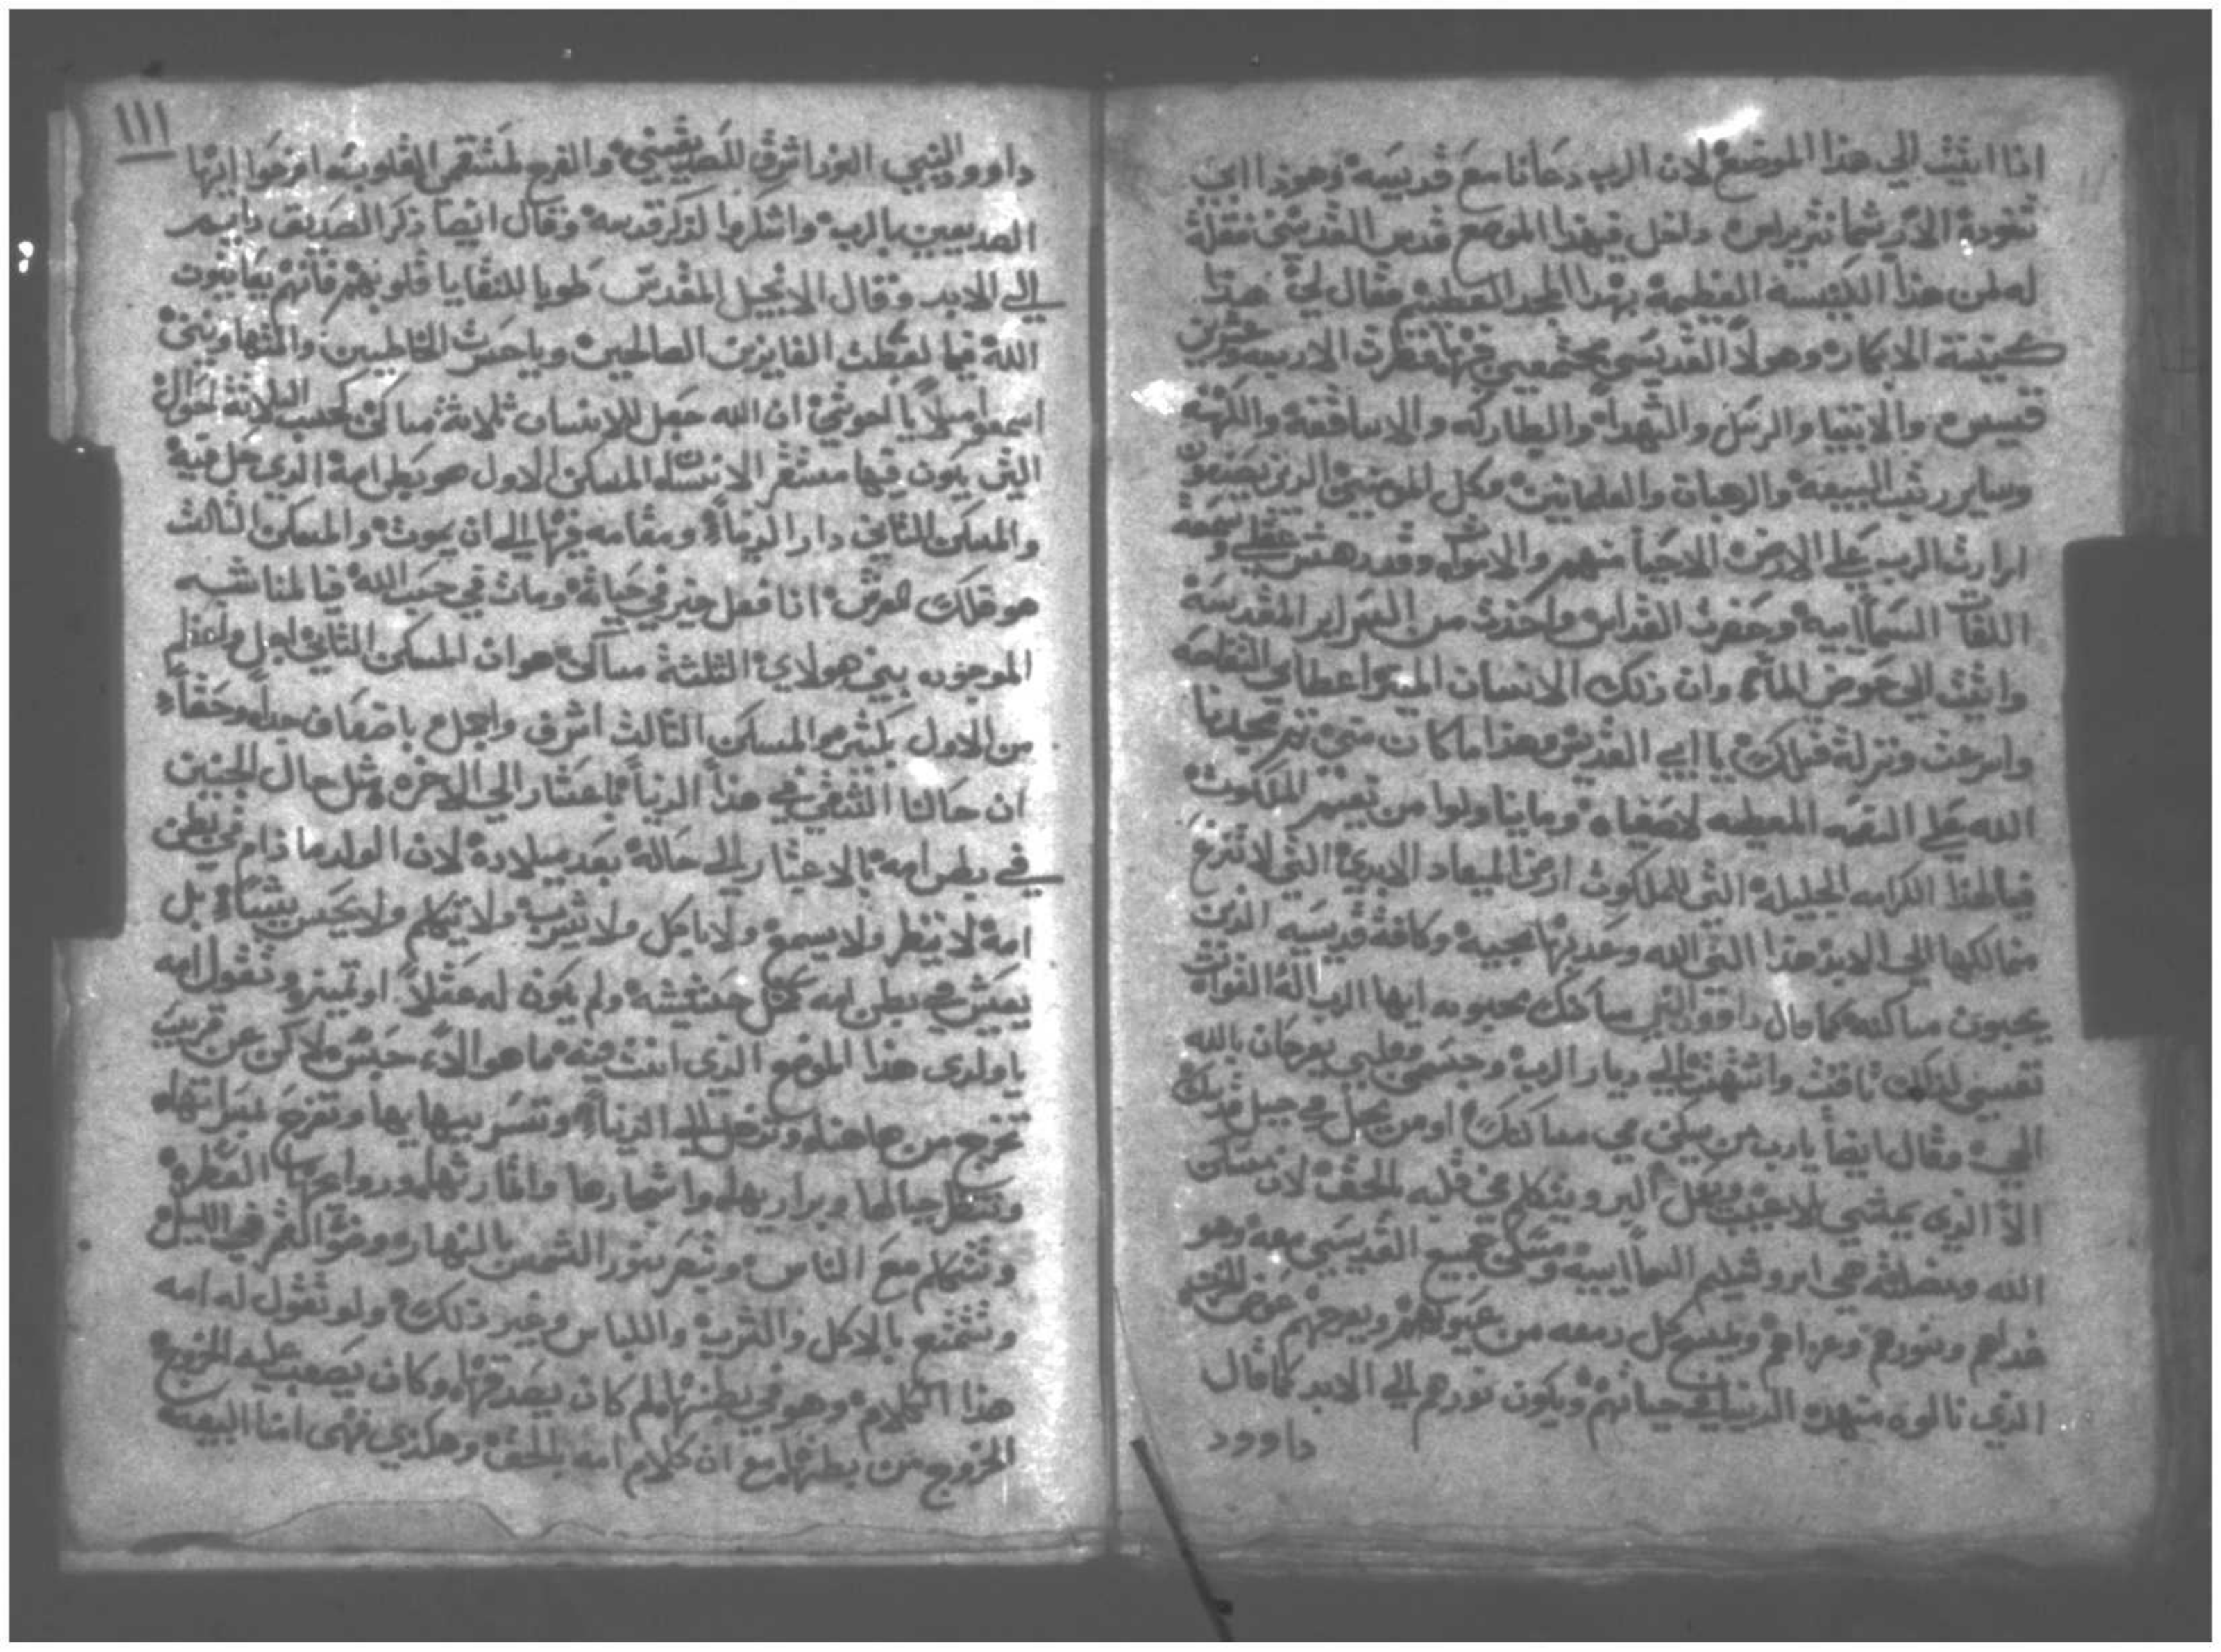 انا اتيت الي هذا الموضع لان الرب دعانا مع قديسيه وهوذا ابي
الي هذا الموضع قدس القديسين فقلت
له لمن هذا الكنيسة العظيمة بهذا المجد العظيم فقال لي هذا
كنيسة الابكار وهولا القديسين مجتمعين فيها فنظرت الاربعه وعشرين
قسيس والانبيا والرسل والشهدا والبطاركه والاساقفة والكهنة
وساير رتب البيعه والرهبان والعلمانيين وكل المومنين الذين يصنعون
ارادت الرب علي الارض الاحيا منهم والاموات وقد دهش عقلي
السماييه وحضرت القداس واخذت من السراير المقدسة
واتيت الي حوض الما وان ذلك الانسان المنير اعطاني التفاحه
واسرعت ونزلة قبلك يا ابي القديس وهذا ما كان مني
الله علي النعمه المعطيه لاصفياه وما ينالوا من نعيم الملكوت
فيالهذا الكرامه الجليلة التي للملكوت ارض الميعاد الابدي التي لا
الي الابد هذا التي الله وعد بها محبيه وكافة قديسيه الذين
يحبون مساكنه كما قال داوود النبي مساكنك محبوبه ايها الرب اله القوات
نفسي لذلك تاقت واشتهت الي ديار الرب وجسمي وقلبي يفرحان بالله
الحي وقال ايضا يارب من يسكن في مساكنك او من يحل في جبل قدسك
الا الذي يمشي بلا عيب ويعمل البر ويتكلم في قلبه بالحق لان مسكن
الله ومضلته هي اروشليم السماييه ومسكن جميع القديسين معه وهو
ونورهم وعزاهم ويمسح كل دمعه من عيونهم ويفرحهم عوض الحزن
الذي نالوه منهذه الدنيا في حياتهم ويكون نورهم الي الابد كما قال
داوود
١١١
داوود النبي النور اشرق للصديقين والفرح لمستقمي القلوب افرحوا ايها
الصديقين بالرب واشكروا لذكر قدسه وقال ايضا ذكر الصديق دايم
الي الابد وقال الانجيل المقدس طوبا للنقايا قلوبهم فانهم يعاينون
الله فيما لغبطت الفايزين الصالحين وياحسرت الخاطيين والمتهاونين
اسمعوا ميلا يا اخوتي ان الله جعل للانسان ثلاثة مساكن كحسب الثلاثة احوال
التي يكون فيها مستقر الانسان المسكن الاول هو بطن امه الذي حل فيه
والمسكن الثاني دار الدنيا ومقامه فيها الي ان يموت والمسكن الثالث
هو فلك العرش اذا فعل خير في حياته ومات في حب الله فيا لمناسبه
الموجوده بين هولاي الثلثة مساكن هو ان المسكن الثاني اجل واعظم
من الاول بكثير والمسكن الثالث اشرف واجل باضعاف جدا وحقا
ان حالنا الشقي في هذا الدنيا باعتبار الي الاخره مثل حال الجنين
في بطن امه بالاعتبار الي حاله بعد ميلاده لان الولد ما دام في بطن
امه لا ينظر ولا يسمع ولا ياكل ولا يشرب ولا يتكلم ولا يحس بشيا بل
يعيش في بطن امه كمثل حشيشه ولم يكون له عقلا او تمييز وتقول امه
يا ولدي هذا الموضع الذي انت فيه ما هو الا حبس ولاكن عن قريب
تخرج من هاهنا وتدخل الي الدنيا وتسر ببهايها وتفرح
وتنظر جبالها وبراريها واشجارها واثمارها وروايحها العطره
وتتكلم مع الناس وتبصر نور الشمس بالنهار وضو القمر في الليل
وتتمتع بالاكل والشرب واللباس وغير ذلك ولو تقول له امه
هذا الكلام وهو في بطنها لم كان يصدقها وكان يصعب عليه الخروج
الخروج من بطنها مع ان كلام امه بالحق وهكذي فهي امنا البيعه